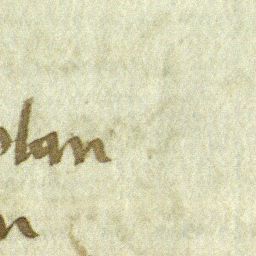 olan
n